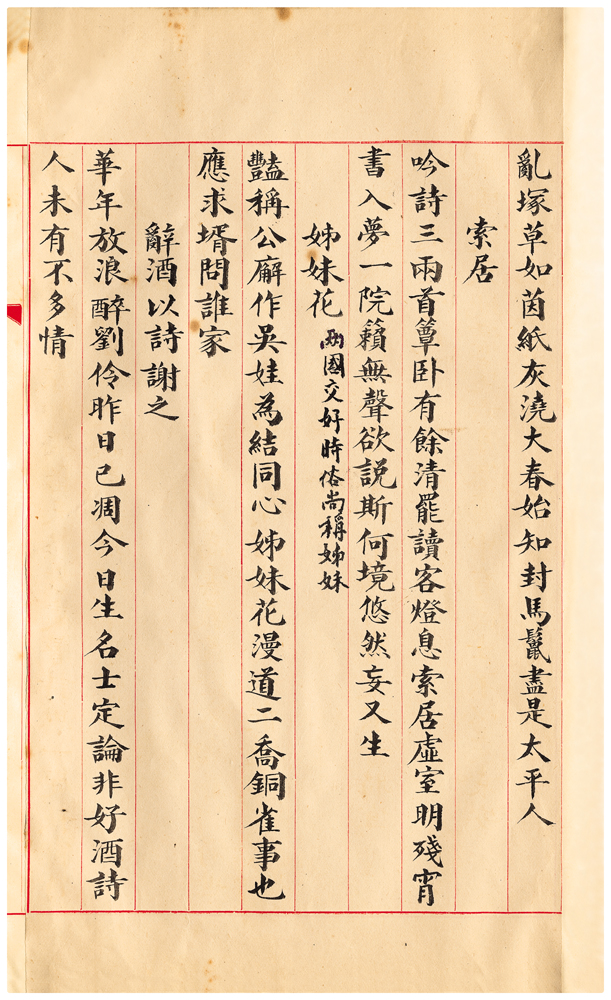 亂塚草如茵紙灰澆大春始知封馬鬣盡是太平人
索居
吟詩三兩首簟卧有餘清罷讀客燈息索居虛室明殘宵
書入夢一院籟無聲欲説斯何境悠然妄又生
姊妹花 兩國交好時俗尚稱姊妹
豔稱公廨作吳娃為結同心姊妹花漫道二喬銅雀事也
應求壻問誰家
辭酒以詩謝之
華年放浪醉劉伶昨日已凋今日生名士定論非好酒詩
人未有不多情